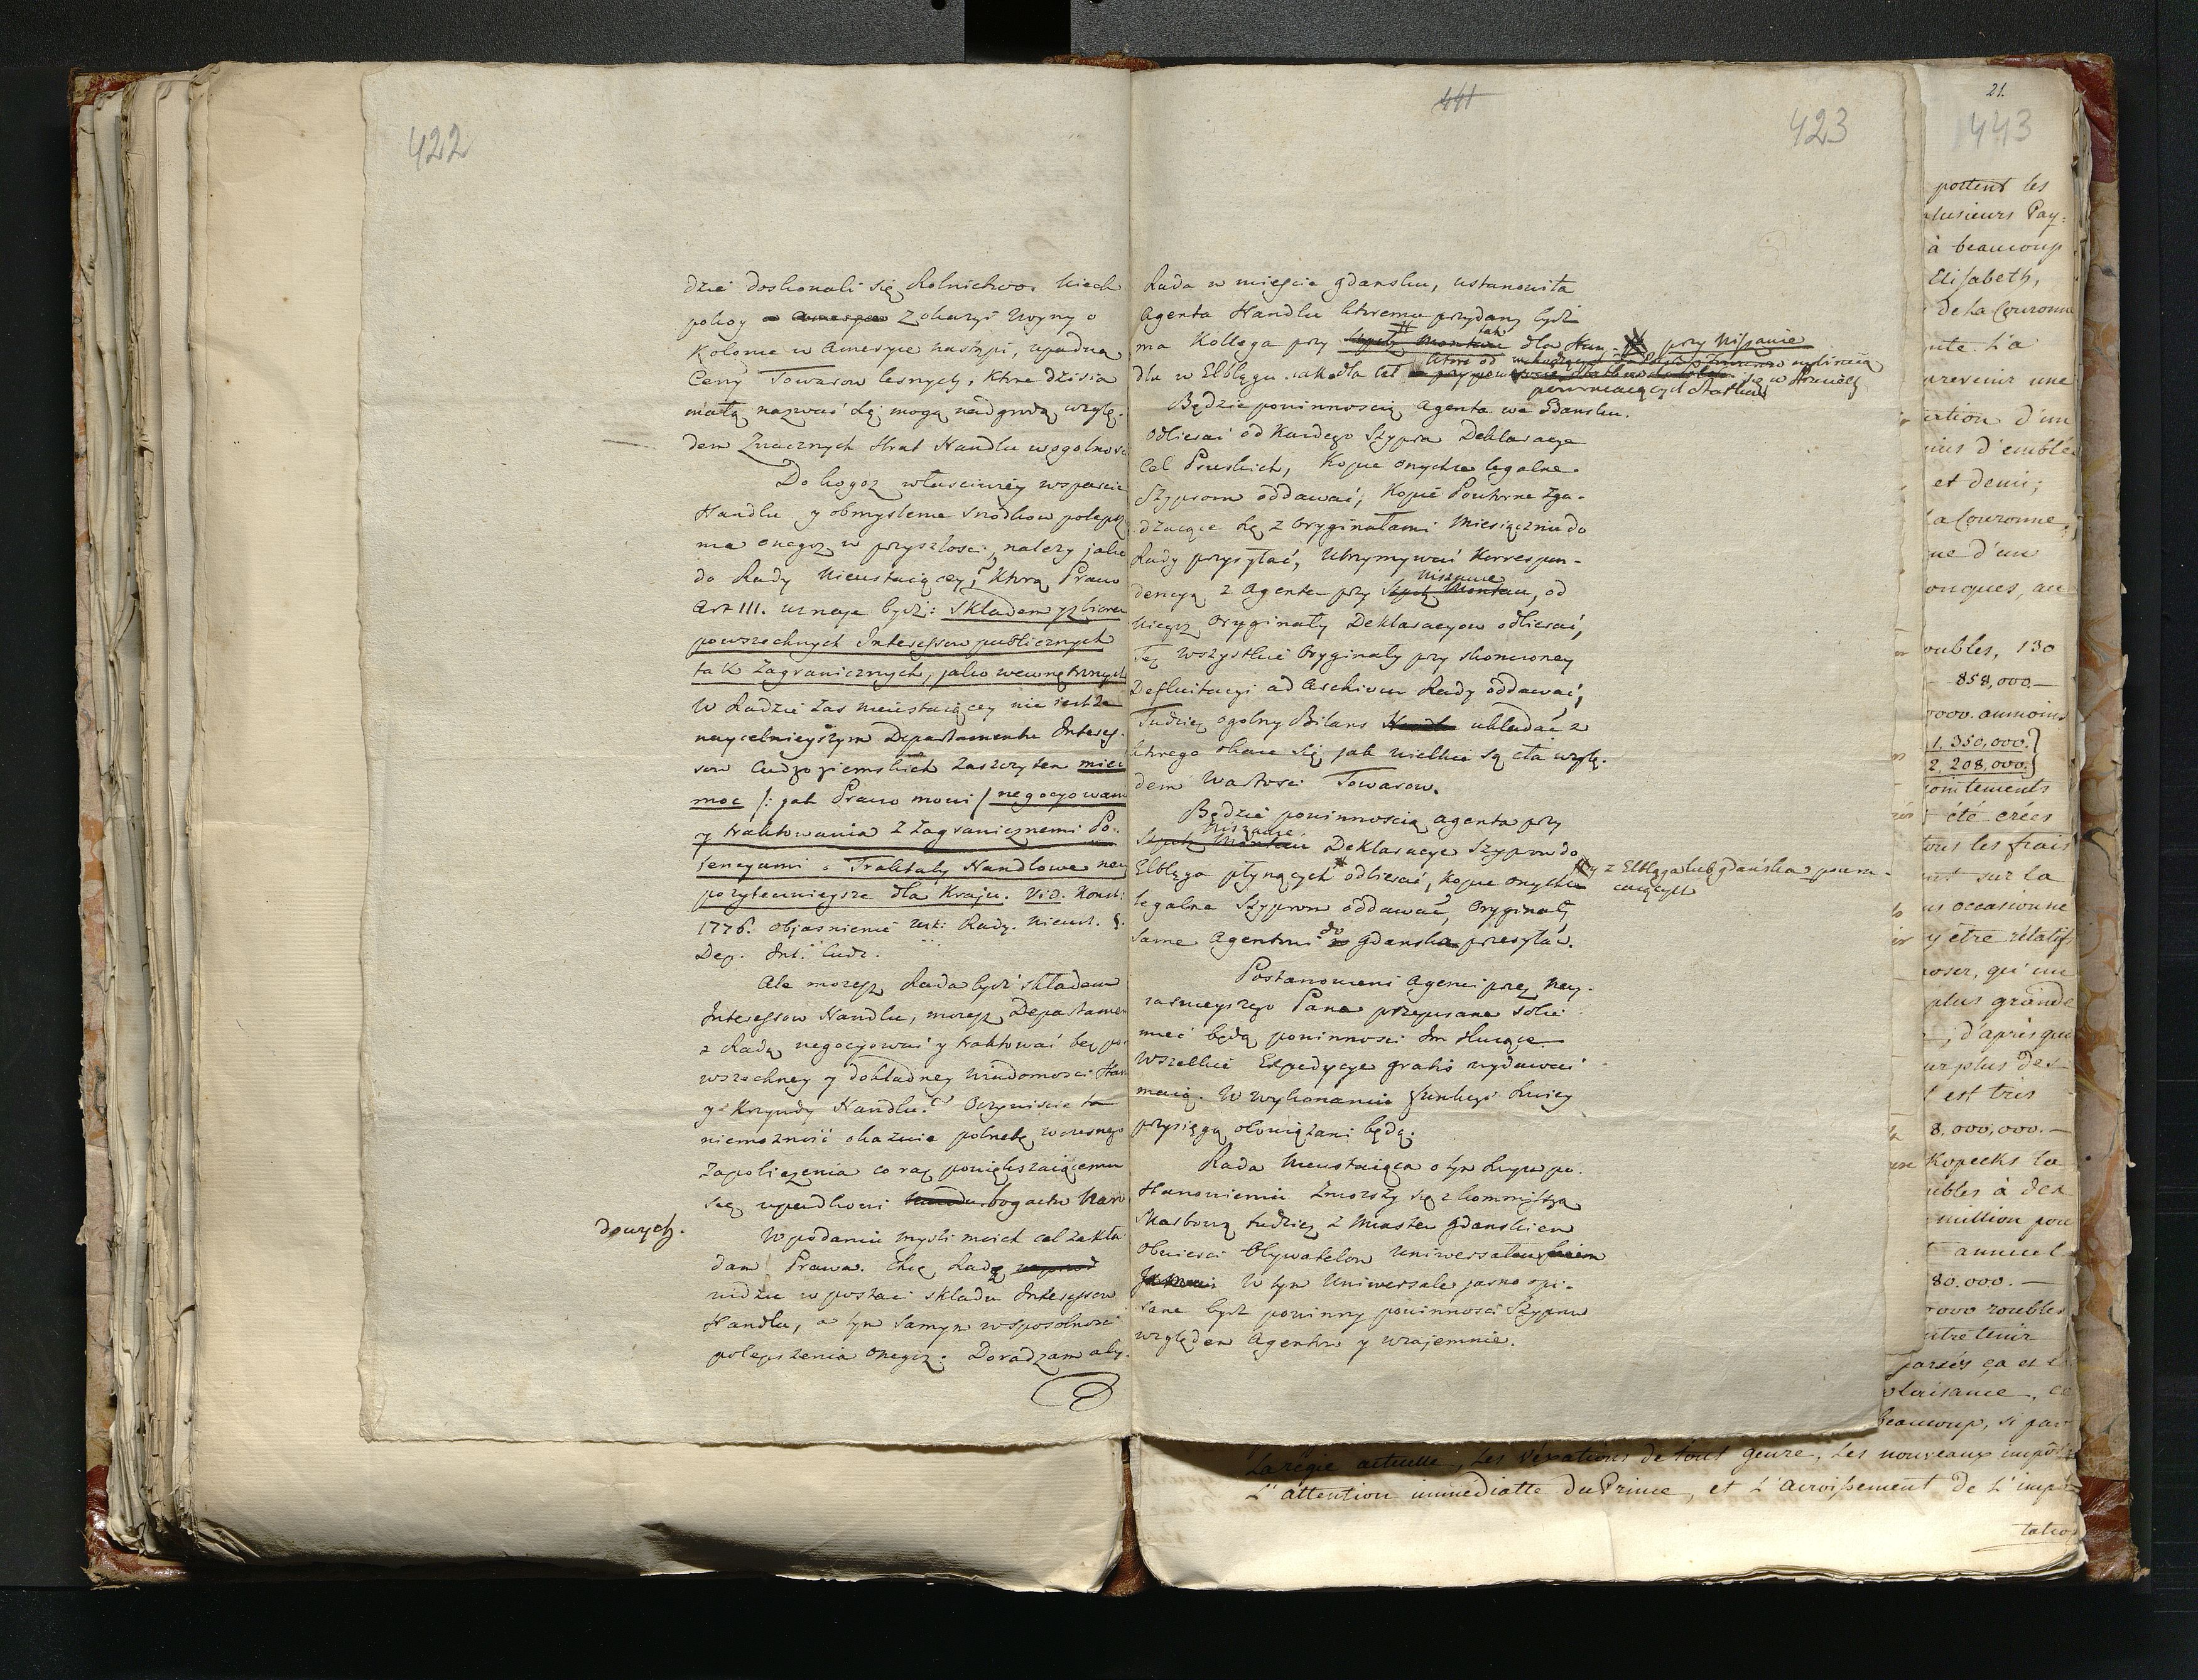 422
dzie doskonali się Rolnictwo. Niech
pokoy z okazyi Woyny o
Kolonie w Ameryce nastąpi, upadną
Ceny Towarow lesnych, które dzisia
małą nazwać się mogą nadgrodą wzglę-
dem znacznych strat Handlu wogolnosci
Do kogoz własciwiey wsparcie
Handlu y obmyslenie srodkow polepsz
nia onegoz w przyszłosci, nalezy jako
do Rady Nieustaiącey? Którą Prawo
Art III. uznaje bydz: Składem y zbiorem
powszechnych Interessow publicznych
tak Zagranicznych, jako wewnętrznych
W Radzie zas nieustaiącey nie jestże
naycelnieyszym Departamentu Interes-
sow Cudzoziemskich zaszczytem miec
moc /: jak Prawo mowi / negocyowania
y traktowania z Zagranicznemi Po-
tencyami o Traktaty Handlowe nay
pozytecznieysze dla Kraju. Vid. Konst:
1776. objasnienie Ust: Rady. Nieust. §.
Dep. Int: Cudz.
Ale mozesz Rada bydz składem
Interessow Handlu, mozesz Departament
z Radą negocyować y traktować bez po-
wszechney y dokładney wiadomosci Stanu
y Krzywdy Handlu? Oczywiscie ta
niemożność okazuie potrzebę wczesnego
zapobieżenia co raz powiększaiącemu
się upadkowi bogactw Naro
dowych.
W podaniu mysli moich cel zakła
dam Prawa. Chcę Radę
widzieć w postaci składu Interessow
Handlu, a tym samym wsposobnosci
polepszenia onegoz: Doradzam aby.
441
423
Rada w miescie Gdansku, ustanowiła
Agenta Handlu ktoremu przydany bydz
ma Kollega przy Szpitz Montau tak dla Han- przy Nispanie
dlu w Elblągu. jako dla ceł
powracaiących Statkow
Będzie powinnoscią Agenta we Gdansku.
Odbierać od Kazdego Szypra Deklaracye
Cel Pruskich, Kopie onychze legalne
Szyprom oddawać, Kopie Powtorne zga-
dzaiące się z Oryginałami Miesięcznie do
Rady przysyłać, Utrzymywać Korrespon-
dencyą z Agentem przy Szpitz Montau, od
Niszanie
niegoz Oryginały Deklaracyow odbierać,
Też Wszystkie Oryginały przy skonczoney
Defluitacyi ad Archivum Rady oddawać,
Tudziez ogolny Bilans układać z
ktorego okaze się jak wielkie są cła wzglę-
dem Wartosci Towarow.
Będzie powinnoscią Agenta przy
Niszanie
Szpitz Montau Deklaracye Szyprow do
Elbląga płynących odbierać, Kopie onychze
y z Elbląga lub Gdanska powra-
caiących
legalne Szyprom oddawać, Oryginały
same Agentowi do Gdanska przesyłać.
Postanowieni Agenci przez Nay-
iasnieyszego Pana przepisane sobie
mieć będą powinnosci Im służące
Wszelkie Expedycye gratis wydawać
maią. W wykonaniu funkcyi swoiey
przysięgą obowiązani będą.
Rada Nieustaiąca o tym swym po-
stanowieniu Zniosszy się z Kommissyą
Skarbową tudziez z Miastem Gdanskiem
Obwiesci Obywatelow Uniwersałem
W tym Uniwersale jasno opi-
sane bydz powinny powinnosci Szyprow
względem Agentow y wzajemnie.
21.
443
portent les
plusieurs Pay:
à beaucoup
Elisabeth,
de la Couronne
La
prevenir une
ration d'un
et demi;
la Couronne,
ne d'un
onques, au
oubles, 130
858,000.—
000. aumoins
1,350,000.
2,208,000.
comtements
été crées
tous les frais
sur la
us occasionne
y etre rélatifs
poser, qu'un
plus grande
; d'après que
surplus des
est très
8,000,000.—
Kopecks la
ubles à dex
million pou
annuel
80.000.—
000 roubles
entretenir
beaucoup, si par
La régie actuelle, les vexations de tout genre, les nouveaux impôts
L'attention immédiatte du Prince, et L'accroissement de L'impor
tation